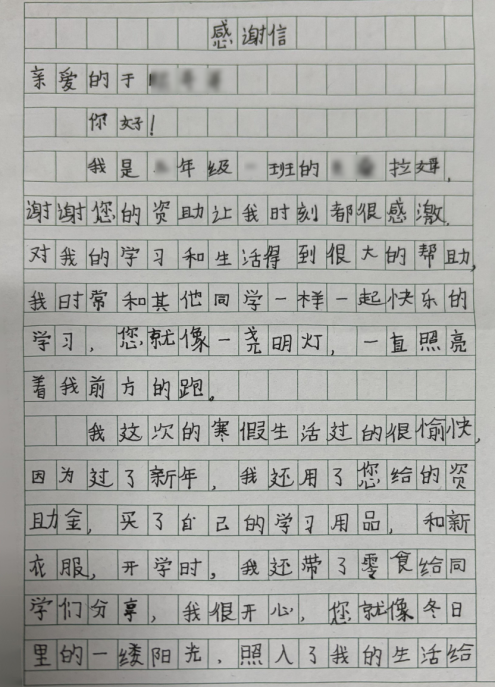 感谢信
亲爱的于
你好!
我是 年级 班的 拉姆,
谢谢您的资助让我时刻都很感激.
对我的学习和生活得到很大的帮助,
我时常和其他同学一样一起快乐的
学习,您就像一尧明灯,一直照亮
着我前方的跑。
我这次的寒假生活过的很愉快,
因为过了新年,我还用了您给的资
助金,买了自己的学习用品,和新
衣服,开学时,我还带了零食给同
学们分享,我很开心,您就像冬日
里的一缕阳光,照入了我的生活给